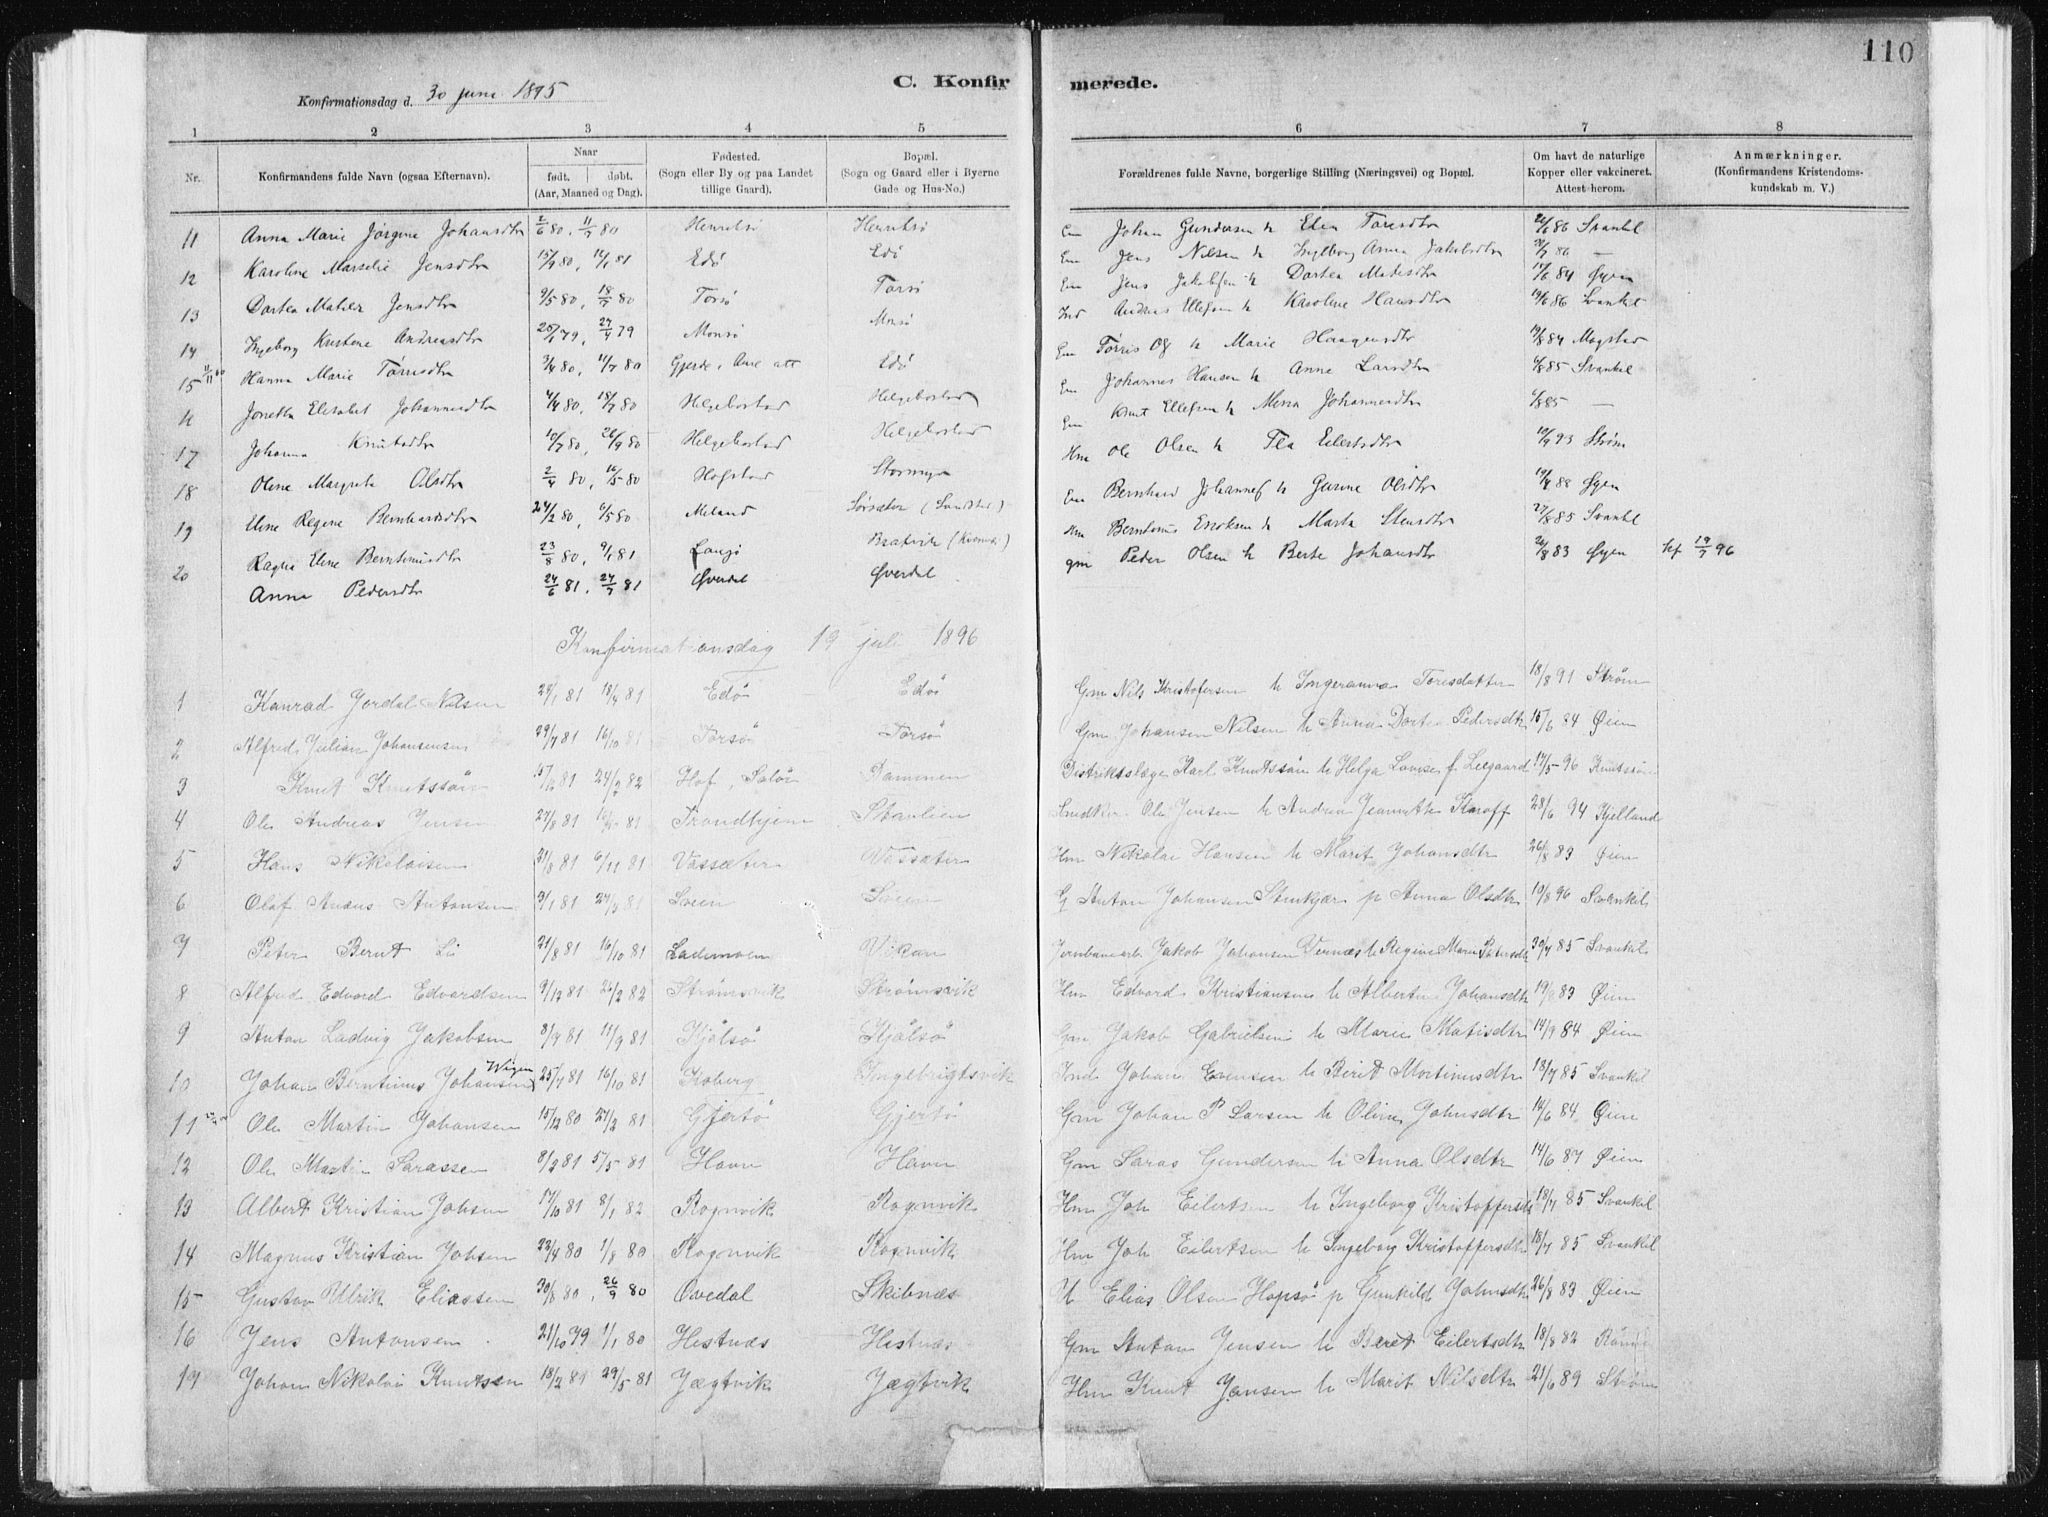 110
C. Konfirmerede.
Konfirmationsdag d. 30 juni 1895
1 2 3 4 5 6 7 8
Nr. Konfirmandens fulde Navn (ogsaa Efternavn). Naar født. døbt. (Aar, Maaned og Dag). Fødested. (Sogn eller By og paa Landet tillige Gaard). Bopæl. (Sogn og Gaard eller i Byerne Gade og Hus-No.) Forældrenes fulde Navne, borgerlige Stilling (Næringsvei) og Bopæl. Om havt de naturlige Kopper eller vaksineret. Attest herom. Anmærkninger. (Konfirmandens Kristendomskundskab m. V.)
11 Anna Marie Jørgine Johansdtr 2/6 80, 11/7 80 Henriksø Henriksø Em Johan Gundersen h Elen Toresdtr 26/6 86 Svankil
12 Karoline Marselie Jensdtr 15/9 80, 16/1 81 Edø Edø Em Jens Nilsen h Ingeborg Anna Jakobsdtr
13 Dortea Matilde Jensdtr 9/5 80, 18/7 80 Torsø Torsø Em Jens Jakobsen h Dortea Madesdtr 14/6 84 Øyen
14 Ingeborg Kristine Andreasdtr 27/4 79 Monsø Monsø Ind Andreas Ellefsen h Karoline Hansdtr 19/6 86 Svankil
15 Hanna Marie Tørrisdtr 3/4 80, 11/7 80 Gjerde, Aure Edø Em Tørris h Marie Haagensdtr 19/8 84 Mogstad
16 Jonetta Elisabet Johannesdtr 4/4 80, 18/7 80 Helgebostad Helgebostad Em Johannes Hansen h Anne Larsdtr 6/8 85 Svankil
17 Johanna Knutsdtr 10/7 80, 26/9 80 Helgebostad Helgebostad Em Knut Ellefsen h Johannesdtr 6/8 85 —
18 Oline Margrete Olsdtr 2/4 80, 16/5 80 Hofstad Stormyr Hm Ole Olsen h Eilertsdtr 19/9 93 Strøm
19 Regine Bernhardsdtr 24/2 80, 6/5 80 Meland Sørsæter Em Bernhard Johannes h Gurine Olsdtr 19/4 88 Øyen
Elene Berntinusdtr 23/8 80, 9/1 81 Langø Bratvik Hm Berntinus Eriksen h Marta Stensdtr 27/8 85 Svankil
20 Anna Pedersdtr 24/6 81, 24/7 81 Øverdal Øverdal gm Peder Olsen h Berte Johansdtr 26/8 83 Øyen kf 19/7 96
Konfirmationsdag 19 juli 1896
1 Konrad Jordal Nilsen 29/1 81 18/4 81 Edø Edø Gm Nils Kristofersen h Ingeranna Toresdatter 18/8 91 Strøm
2 Alfred Julian Johansensen 29/7 81 16/10 81 Torsø Torsø Gm Johansen Nilsen h Anna Dortea Pedersdtr 15/6 84 Øien
3 Knut Knutssøn 15/6 81 24/2 82 Hof, Solør Rammen Distriktslæge Karl Knutssøn h Helga Lovise f. Leegaard 17/5-96 Knutssøn
4 Ole Andreas Jensen 27/8 81 Trondhjem Stavlien Snedker Ole Jensen h Andrea Jeanette 28/6 94 Kjelland
5 Hans Nikolaisen 31/8 81 6/11 81 Vassæter Vassæter Hm Nikolai Hansen h Marit Johansdtr 26/8 83 Øien
6 Olaf Andreas Antonsen 3/1 81 Sveen Sveen G Anton Johansen Stenkjær p Anna Olsdtr 19/8 96 Svenkil
7 Peter Bernt Li 21/8 81 16/10 81 Lademoen Vikan Jernbanearb Jakob Johansen Vernæs h Regine Marie Petersdtr 30/7 85 Svankil
8 Alfred Edvard Edvardsen 9/12 81 26/2 82 Strømsvik Strømsvik Hm Edvard Kristiansen h Albertine Johansdtr 19/8 83 Øien
9 Anton Ludvig Jakobsen 8/7 81 11/9 81 Kjølsø Kjølsø Gm Jakob Gabrielsen h Marie Matisdtr 14/9 84 Øien
10 Johan Berntinus Johansen Wigen 25/7 81 16/10 81 Koberg Ingebrigtsvik Ind Johan Evensen h Berit Martinusdtr 18/7 85 Svankil
11 Ole Martin Johansen 15/12 80 27/2 81 Gjertø Gjertø Gm Johan P Larsen h Oline Johnsdtr 14/6 84 Øien
12 Ole Martin Sarassen 8/2 81 5/5 81 Havn Havn Gm Saras Gundersen h Anna Olsdtr 14/6 87 Øien
13 Albert Kristian Johsen 17/10 81 8/1 82 Rognvik Rognvik Hm Joh Eilertsen h Ingeborg Kristoffersdtr 18/7 85 Svankil
14 Magnus Kristian Johsen 23/4 80 1/8 80 Rognvik Rognvik Hm Joh Eilertsen h Ingeborg Kristoffersdtr 18/7 85 Svankil
15 Gustav Ulrik Eliassen 30/8 80 26/9 80 Ovedal Skibnæs U Elias Olsen Hopsø p Gunhild Johnsdtr 26/8 83 Øien
16 Jens Antonsen 21/10 79 1/1 80 Hestnæs Hestnæs Gm Anton Jensen h Beret Eilertsdtr 18/8 82
17 Johan Nikolai Knutsen 18/2 81 29/5 81 Jægtvik Jægtvik Hm Knut Jansen h Marit Nilsdtr 21/6 89 Strøm